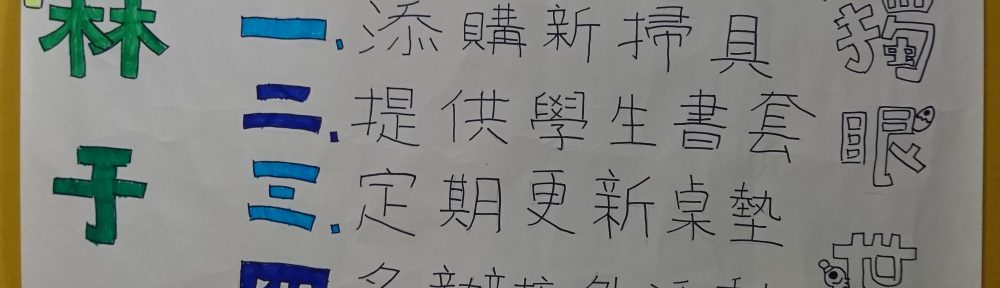 獨眼世
一.添購新掃具
二.提供學生書套
三.定期更新桌墊
四
林于